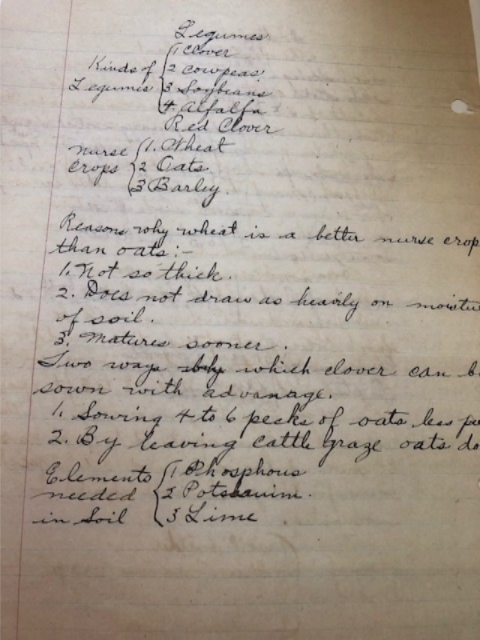 Legumes
Kinds of Legumes { 1 Clover
2 Cowpeas
3 Soybeans
4 Alfalfa
Red Clover
nurse crops { 1. Wheat
2 Oats
3 Barley.
Reasons why wheat is a better nurse crop
than oats:-
1. Not so thick.
2. Does not draw as heavily on moistu
of soil.
3. Matures sooner.
Two ways by which clover can b
sown with advanage.
1. Sowing 4 to 6 pecks of oats less pe
2. By leaving cattle graze oats do
Elements needed in Soil { 1 Phosphous
2 Potssauim.
3 Lime